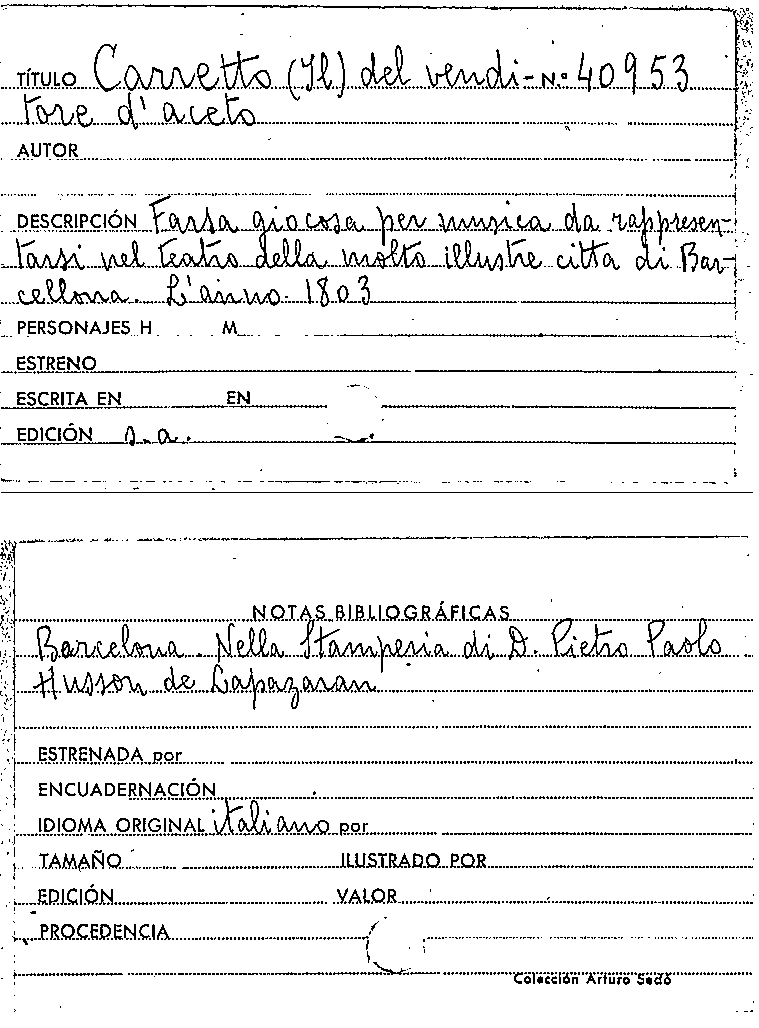 TÍTULO Carretto (Il) del vendi- N.º 40953
tore d'aceto
AUTOR
DESCRIPCIÓN Farsa giocosa per musica da rappresen-
tarsi nel teatro della molto illustre citta di Bar-
cellona. L'anno 1803
PERSONAJES H M
ESTRENO
ESCRITA EN EN
EDICIÓN s.a.
NOTAS BIBLIOGRÁFICAS
Barcelona. Nella Stamperia di D. Pietro Paolo
Husson de Lapazaran
ESTRENADA por
ENCUADERNACIÓN
IDIOMA ORIGINAL italiano por
TAMAÑO ILUSTRADO POR
EDICIÓN VALOR
PROCEDENCIA
Colección Arturo Sedó